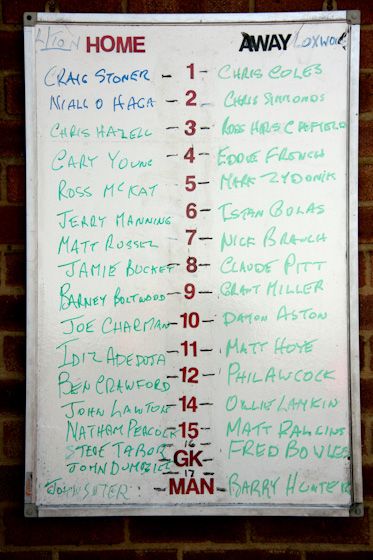 HOME AWAY LOXWOOD
CRAIG STONER - 1 - CHRIS COLES
NIALL O HAGA - 2 - CHRIS SIMMONDS
CHRIS HAZELL - 3 - ROSS
GARY YOUNG - 4 - EDDIE FRENCH
ROSS MCKAY - 5 - MARK ZYDONIK
JERRY MANNING - 6 - ISTAN BOLAS
MATT RUSSEL - 7 - NICK BRANCH
JAMIE BUCKET - 8 - CLAUDE PITT
BARNEY BOLTWOOD - 9 - GRANT MILLER
JOE CHARMAN - 10 - DAMON ASTON
IDIZ ADEDOJA - 11 - MATT HOYE
BEN CRAWFORD - 12 - PHIL AWCOCK
JOHN LAWTON - 14 - OLLIE LAMKIN
NATHAM PEACOCK - 15 - MATT RAWLINS
STEVE TABOR - 16 - FRED BOWLES
JOHN GK
17
MAN - BARRY HUNTER